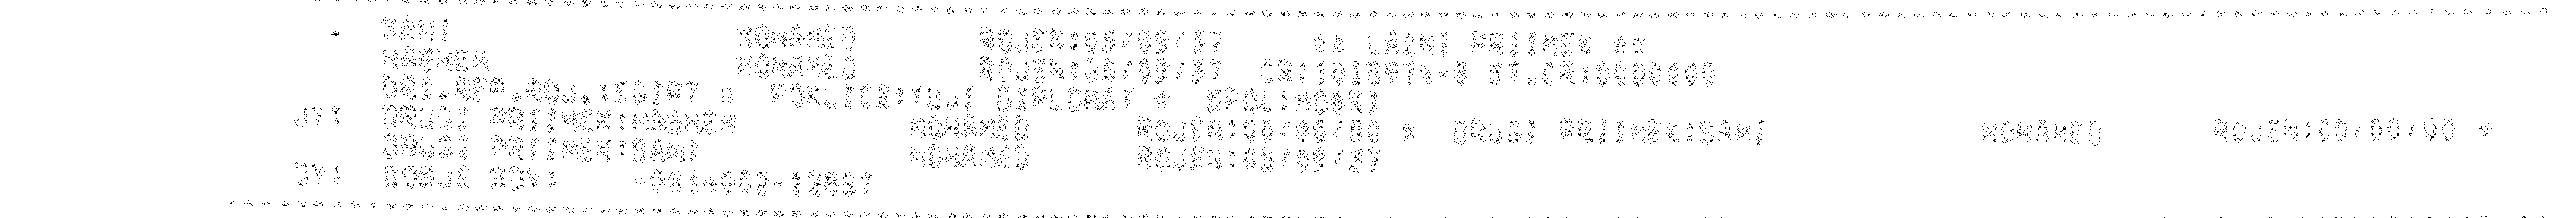 * SAMI MOHAMED ROJEN:05/09/37 ** LAZNI PRIIMEK **
HASHEM MOHAMED ROJEN:05/09/37 CR:1018974-0 ST.CR:0000000
DRZ.REP.ROJ.:EGIPT * POKLIC2:TUJI DIPLOMAT * SPOL:MOSKI
JV: DRUGI PRIIMEK:HASHEM MOHAMED ROJEN:00/00/00 * DRUGI PRIIMEK:SAMI MOHAMED ROJEN:00/00/00 *
DRUGI PRIIMEK:SAMI MOHAMED ROJEN:05/09/37
DV: DOSJE SDV: -0014002-12857